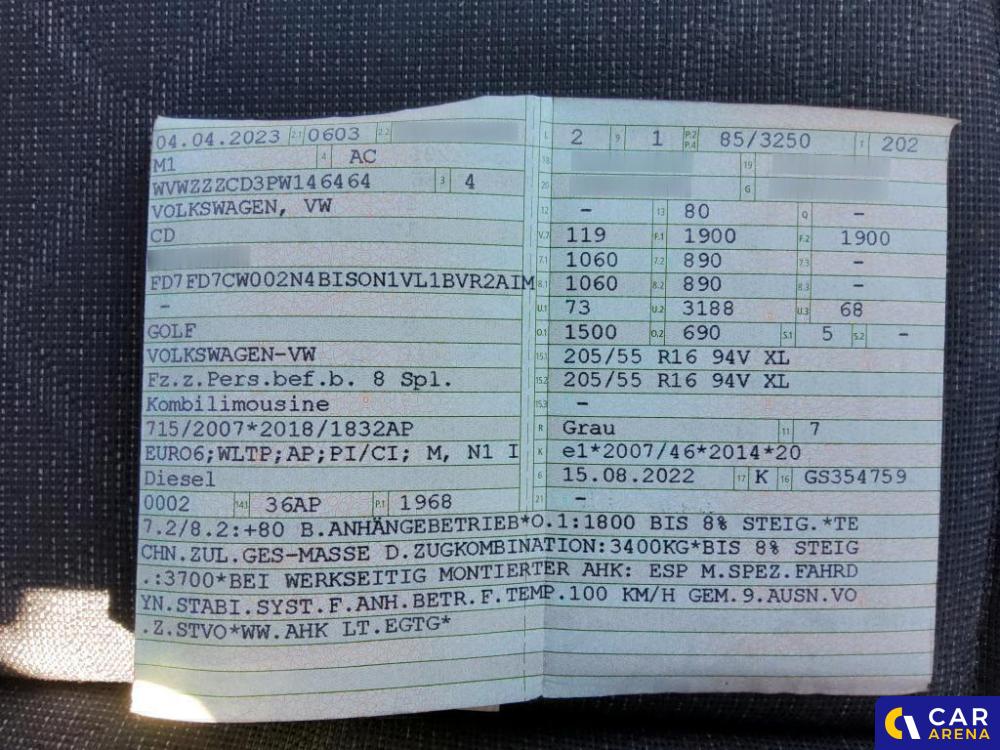 04.04.2023 2.1 0603 2.2 L 2 9 1 P.2 P.4 85/3250 T 202
M1 4 AC 18 19
WVWZZZCD3PW146464 3 4 20 G
VOLKSWAGEN, VW 12 – 13 80 Q –
CD V.7 119 F.1 1900 F.2 1900
7.1 1060 7.2 890 7.3 –
FD7FD7CW002N4BISON1VL1BVR2AIM 8.1 1060 8.2 890 8.3 –
– U.1 73 U.2 3188 U.3 68
GOLF O.1 1500 O.2 690 S.1 5 S.2 –
VOLKSWAGEN-VW 15.1 205/55 R16 94V XL
Fz.z.Pers.bef.b. 8 Spl. 15.2 205/55 R16 94V XL
Kombilimousine 15.3 –
715/2007*2018/1832AP R Grau 11 7
EURO6;WLTP;AP;PI/CI; M, N1 I K e1*2007/46*2014*20
Diesel 6 15.08.2022 17 K 16 GS354759
0002 14.1 36AP P.1 1968 21 –
7.2/8.2:+80 B.ANHÄNGEBETRIEB*O.1:1800 BIS 8% STEIG.*TE
CHN.ZUL.GES-MASSE D.ZUGKOMBINATION:3400KG*BIS 8% STEIG
.:3700*BEI WERKSEITIG MONTIERTER AHK: ESP M.SPEZ.FAHRD
YN.STABI.SYST.F.ANH.BETR.F.TEMP.100 KM/H GEM.9.AUSN.VO
.Z.STVO*WW.AHK LT.EGTG*
CAR
ARENA